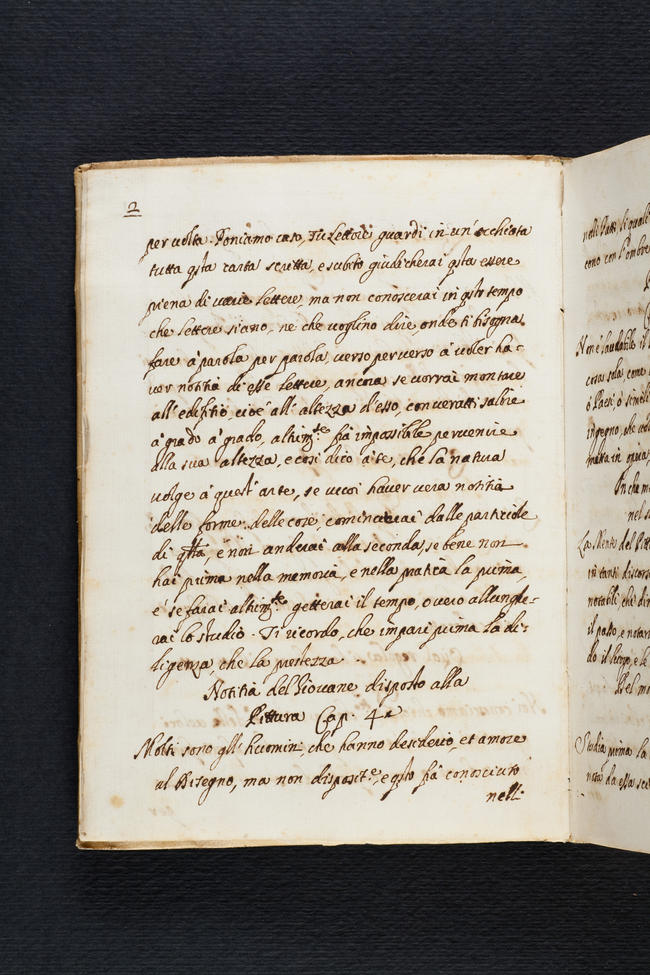 2
per volta. Poniamo caso, Tu Lettore guardi in un'occhiata
tutta qsta carta scritta, e subito giudicherai qsta essere
piena di varie lettere, ma non conoscerai in qsto tempo
che lettere siano, ne che voglino dire, onde ti bisogna
fare à parola per parola, verso per verso à voler ha-
ver notitia di esse lettere, ancora se vorrai montare
all'edifitio, cioè all'altezza d'esso, converatti salire
à grado à grado, altrimte fia impossibile pervenire
alla sua altezza, e così dico à te, che la natura
volge à quest'arte, se vuoi haver vera notitia
delle forme delle cose, comincierai dalle particole
di qlla, e non anderai alla seconda, se bene non
hai prima nella memoria, e nella pratica la prima,
e se farai altrimte getterai il tempo, o vero allunghe-
rai lo studio. Ti ricordo, che impari prima la di-
ligenza, che la prestezza.
Notitia del Giovane disposto alla
Pittura Cap. 4º
Molti sono gli huomini, che hanno desiderio, et amore
al Disegno, ma non dispositne, e qsto fia conosciuto
nelli
nelli Putti, li quali
cono con l'ombre
Non è laudabile il
cosa sola, come
ingegno, che
La Mente del Pitt
in tanti discors
notabili, che
il passo, e notar
do il luogo, e le
Studia prima la
nata da essa sci